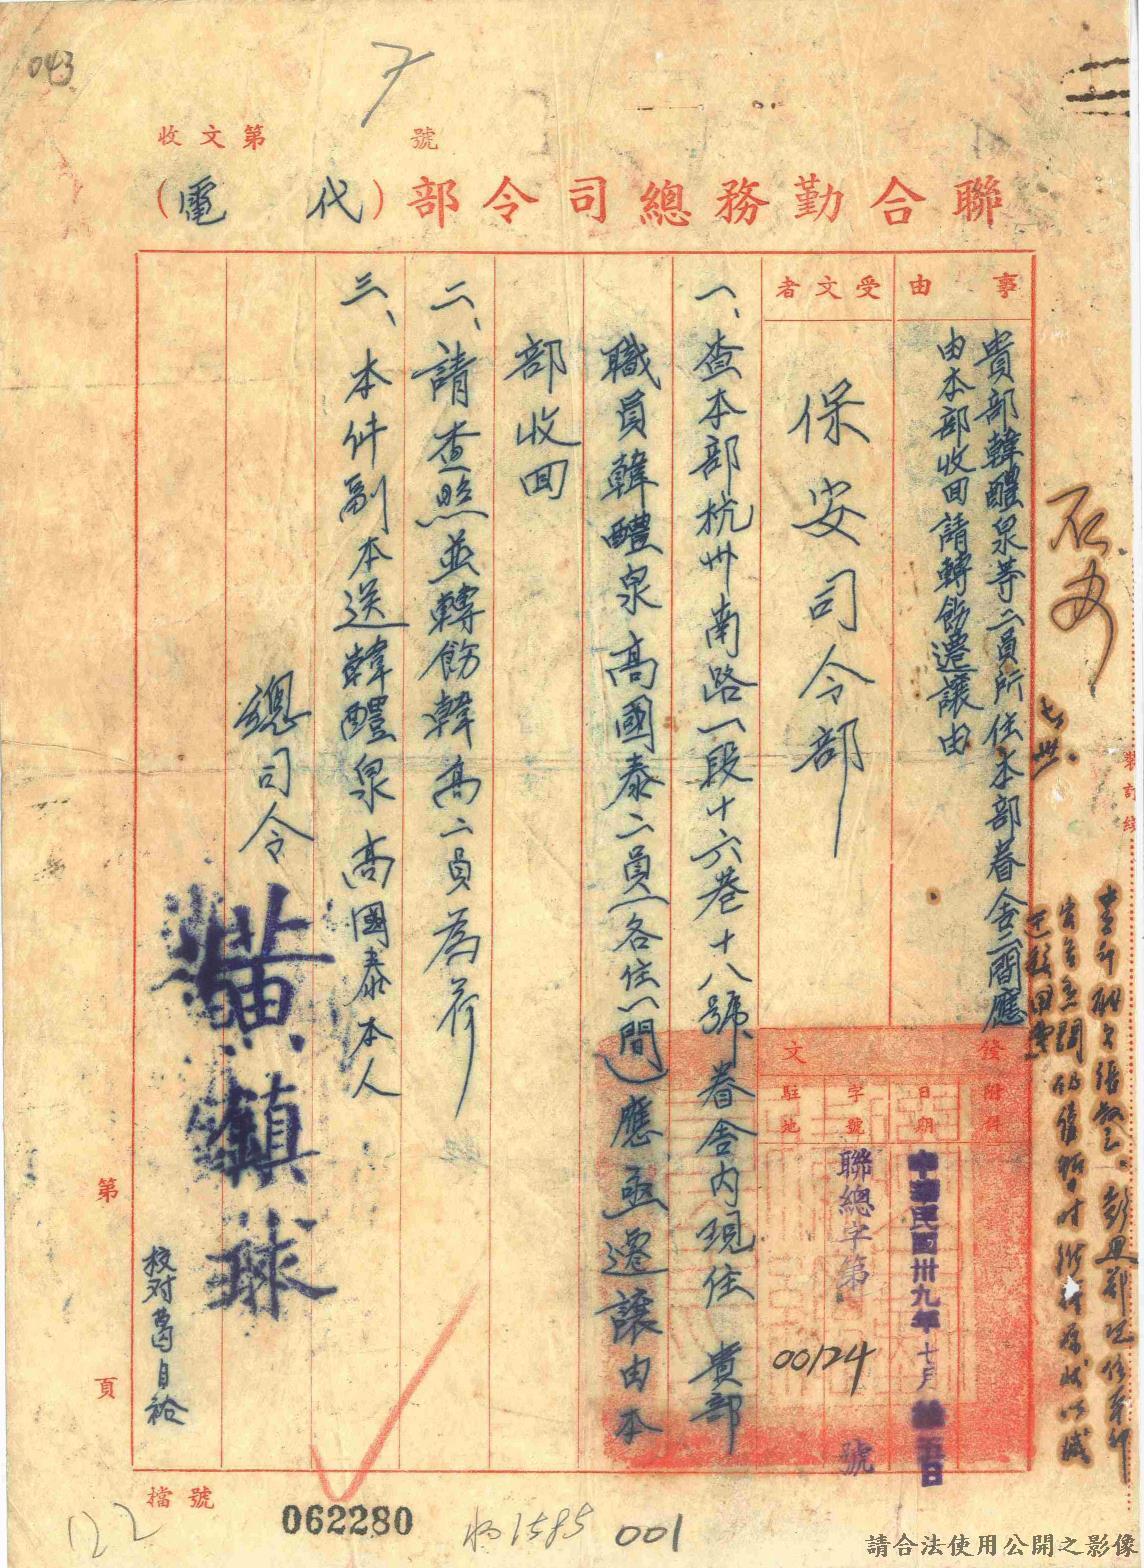 043
收文第 號
聯合勤務總司令部(代電)
事由
貴部韓醴泉等二員所住本部眷舍二間應
由本部收回請轉飭遷讓由
受文者
保安司令部
發文
附件
日期
中華民國卅九年十月 五日
字號
聯總字第 00124 號
駐地
一、查本部杭州南路一段十六巷十八號眷舍內現住 貴部
職員韓醴泉高國泰二員(各住一間)應亟遷讓由本
部收回
二、請查照並轉飭韓高二員為荷
三、本件副本送韓醴泉高國泰本人
總司令
黃鎮球
校對葛自裕
第 頁
裝訂線
檔號
062280
1585
001
122
請合法使用公開之影像